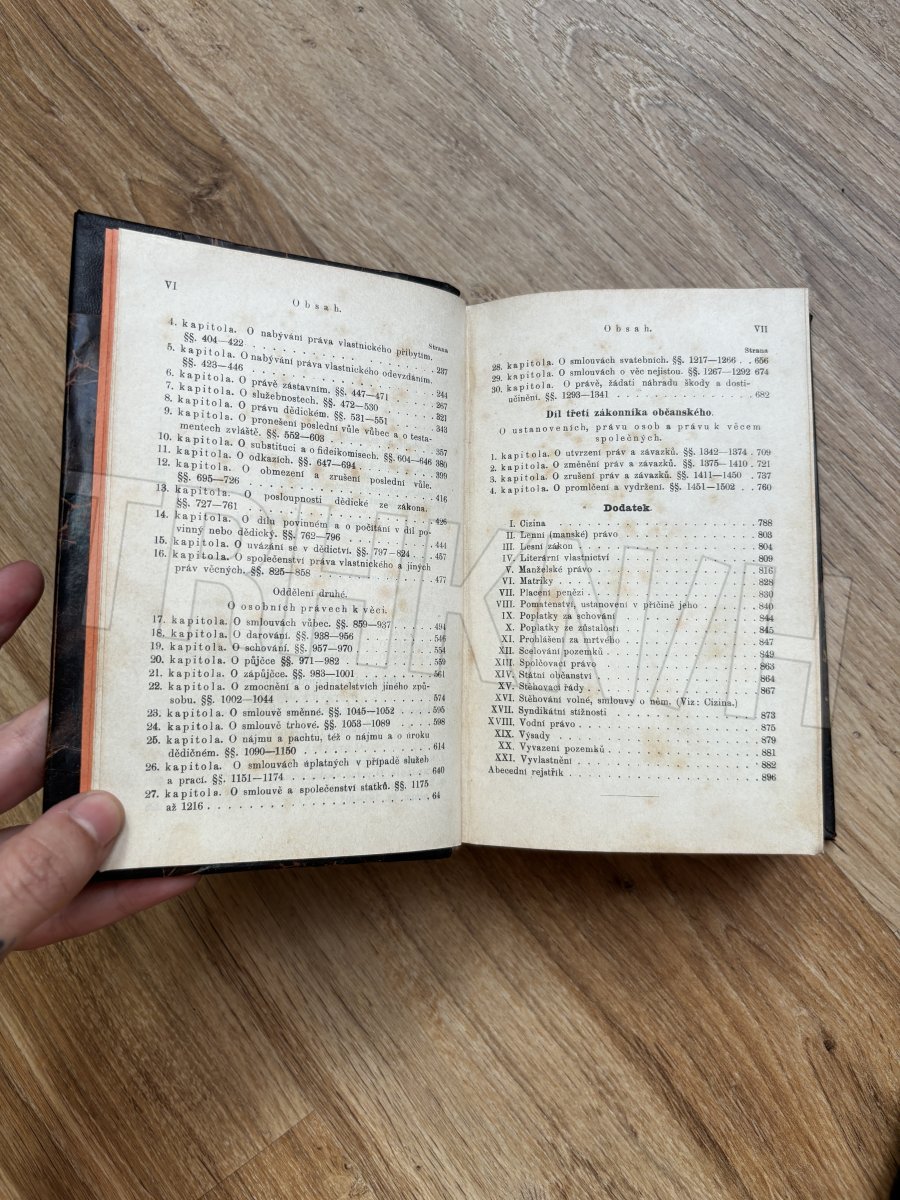 VI
Obsah.
Strana
4. kapitola. O nabývání práva vlastnického přibytím.
§§. 404—422 237
5. kapitola. O nabývání práva vlastnického odevzdáním.
§§. 423—446 244
6. kapitola. O právě zástavním. §§. 447—471 267
7. kapitola. O služebnostech. §§. 472—530 321
8. kapitola. O právu dědickém. §§. 531—551 343
9. kapitola. O pronešení poslední vůle vůbec a o testa-
mentech zvláště. §§. 552—603 357
10. kapitola. O substituci a o fideikomisech. §§. 604—646 380
11. kapitola. O odkazích. §§. 647—694 399
12. kapitola. O obmezení a zrušení poslední vůle.
§§. 695—726 416
13. kapitola. O posloupnosti dědické ze zákona.
§§. 727—761 426
14. kapitola. O dílu povinném a o počítání v díl po-
vinný nebo dědický. §§. 762—796 444
15. kapitola. O uvázání se v dědictví. §§. 797—824 457
16. kapitola. O společenství práva vlastnického a jiných
práv věcných. §§. 825—858 477
Oddělení druhé.
O osobních právech k věci.
17. kapitola. O smlouvách vůbec. §§. 859—937 494
18. kapitola. O darování. §§. 938—956 546
19. kapitola. O schování. §§. 957—970 554
20. kapitola. O půjčce §§. 971—982 559
21. kapitola. O zápůjčce. §§. 983—1001 561
22. kapitola. O zmocnění a o jednatelstvích jiného způ-
sobu. §§. 1002—1044 574
23. kapitola. O smlouvě směnné. §§. 1045—1052 595
24. kapitola. O smlouvě trhové. §§. 1053—1089 598
25. kapitola. O nájmu a pachtu, též o nájmu a o úroku
dědičném. §§. 1090—1150 614
26. kapitola. O smlouvách úplatných v případě služeb
a prací. §§. 1151—1174 640
27. kapitola. O smlouvě a společenství statků. §§. 1175
až 1216 64
Obsah.
VII
Strana
28. kapitola. O smlouvách svatebních. §§. 1217—1266 656
29. kapitola. O smlouvách o věc nejistou. §§. 1267—1292 674
30. kapitola. O právě, žádati náhradu škody a dosti-
učinění. §§. 1293—1341 682
Díl třetí zákonníka občanského.
O ustanoveních, právu osob a právu k věcem
společných.
1. kapitola. O utvrzení práv a závazků. §§. 1342—1374 709
2. kapitola. O změnění práv a závazků. §§. 1375—1410 721
3. kapitola. O zrušení práv a závazků. §§. 1411—1450 737
4. kapitola. O promlčení a vydržení. §§. 1451—1502 760
Dodatek.
I. Cizina 788
II. Lenní (manské) právo 803
III. Lesní zákon 804
IV. Literární vlastnictví 809
V. Manželské právo 816
VI. Matriky 828
VII. Placení penězi 830
VIII. Pomatenství, ustanovení v příčině jeho 840
IX. Poplatky za schování 844
X. Poplatky ze zůstalosti 845
XI. Prohlášení za mrtvého 847
XII. Scelování pozemků 849
XIII. Spolčovací právo 863
XIV. Státní občanství 864
XV. Stěhovací řády 867
XVI. Stěhování volné, smlouvy o něm. (Viz: Cizina.)
XVII. Syndikátní stížnosti 873
XVIII. Vodní právo 875
XIX. Výsady 879
XX. Vyvazení pozemků 881
XXI. Vyvlastnění 882
Abecední rejstřík 896
TRHKNIH